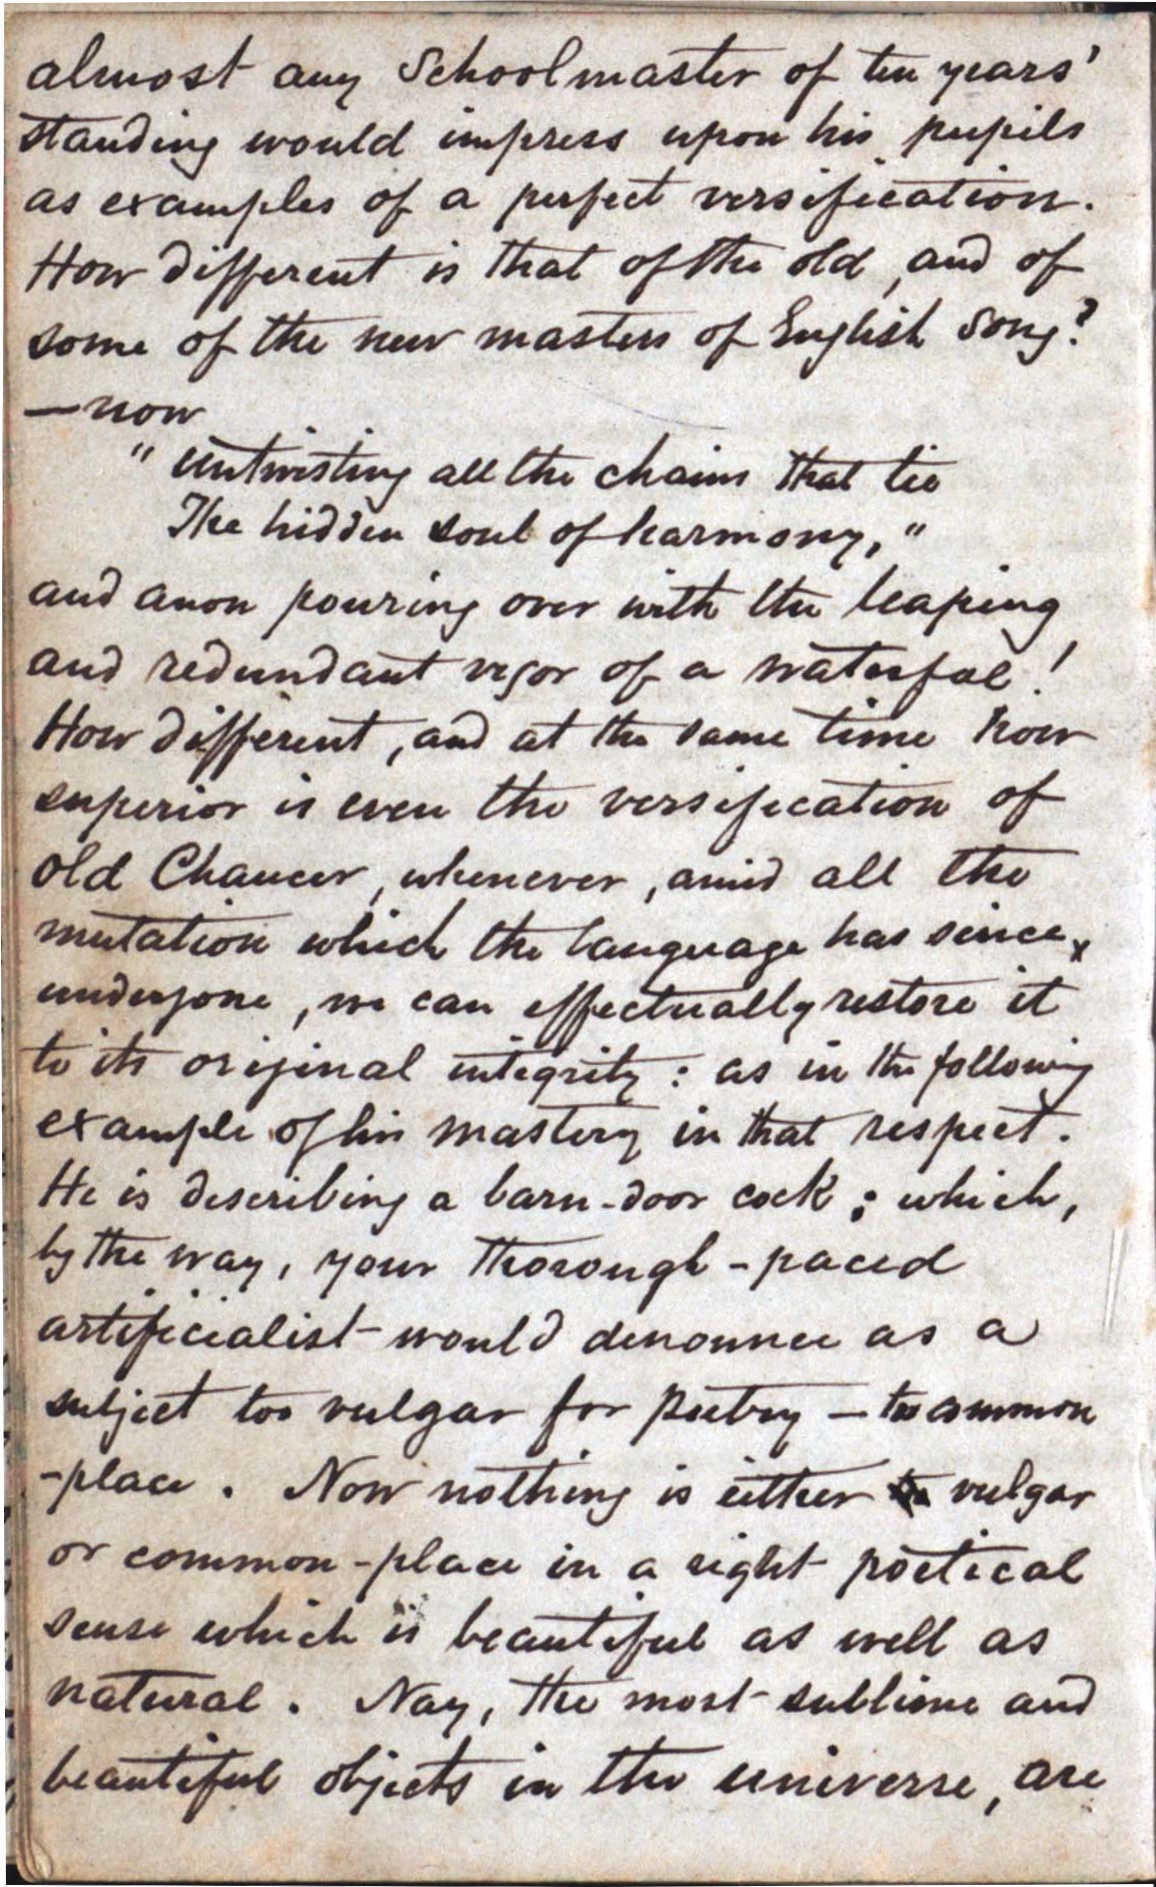 almost any Schoolmaster of ten years'
standing would impress upon his pupils
as examples of a perfect versification.
How different is that of the old, and of
some of the new masters of English Song?
—now
"Untwisting all the chains that tie
The hidden soul of harmony,"
and anon pouring over with the leaping
and redundant vigor of a waterfal!
How different, and at the same time how
superior is even the versification of
old Chaucer, whenever, amid all the
mutation which the language has since
undergone, we can effectually restore it
to its original integrity: as in the following
example of his mastery in that respect.
He is describing a barn-door cock; which,
by the way, your thorough-paced
artificialist would denounce as a
subject too vulgar for poetry — too common
-place. Now nothing is either vulgar
or common-place in a right poetical
sense which is beautiful as well as
natural. Nay, the most sublime and
beautiful objects in the universe, are